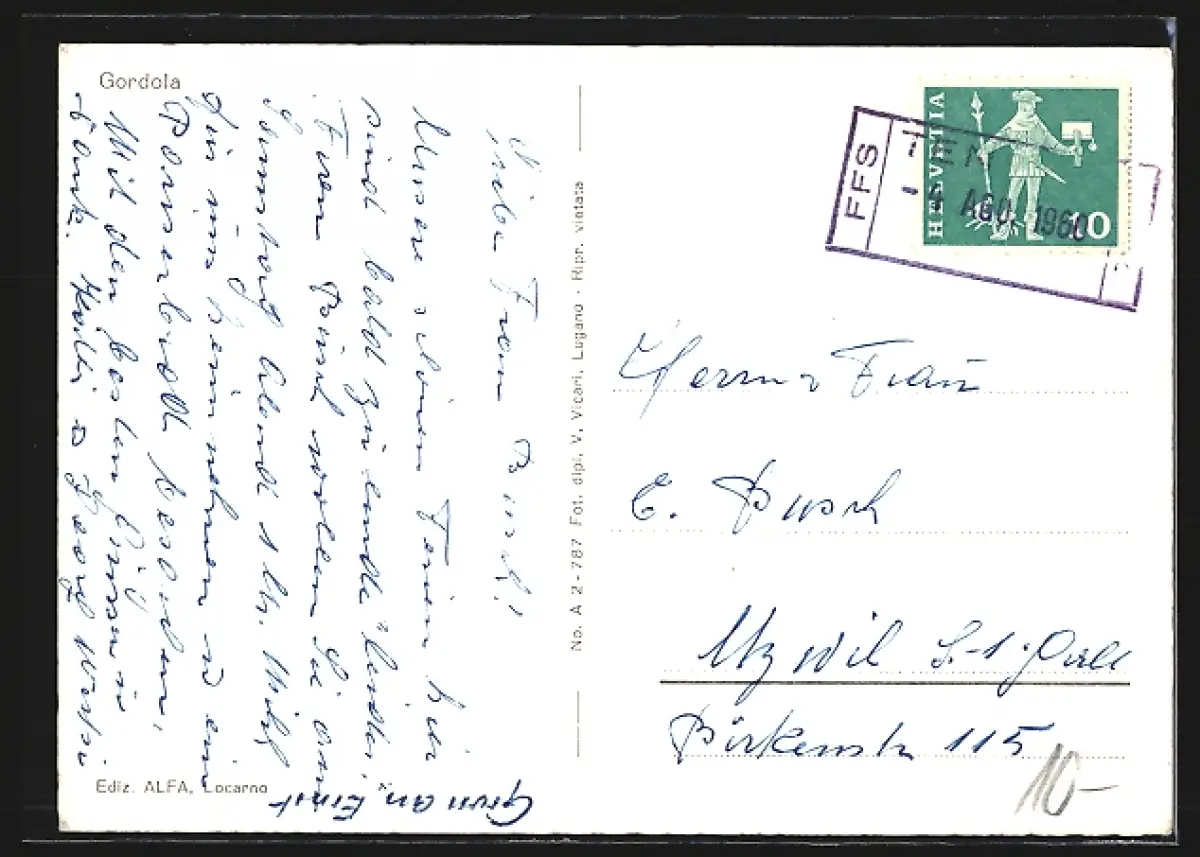 Gordola
Liebe Frau Büsch!
Unsere schönen Ferien hier
sind bald zu Ende "leider".
Fräu Büsch wollen Sie am
Samstag Abend 1 Ltr. Milch
für uns heim nehmen u ein
Ponserbrodt besorgen,
Mit den besten Grüssen u
Dank. u Georg
Gruss an Ernst
Ediz. ALFA, Locarno
No. A 2-787 Fot. dipl. V. Vicari, Lugano - Ripr. vietata
HELVETIA
10
FFS
- 4 AGO. 1960
Herrn u Frau
E. Büsch
Uzwil St. Gall
Birkenstr 115
10-